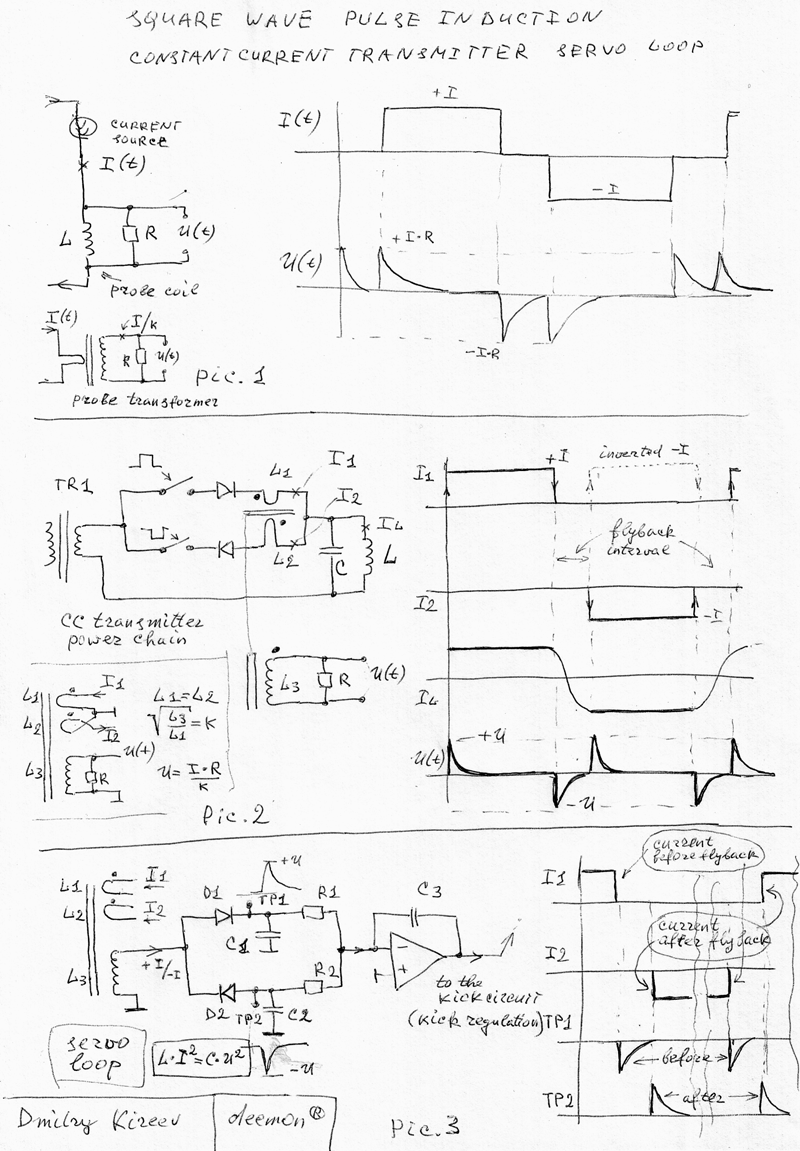 SQUARE WAVE PULSE INDUCTION
CONSTANT CURRENT TRANSMITTER SERVO LOOP
CURRENT
SOURCE
I(t)
L
R
U(t)
probe coil
I(t)
I/K
R
U(t)
probe transformer
Pic.1
I(t)
+I
-I
U(t)
+I·R
-I·R
TR1
L1
I1
I2
L2
IL
C
L
CC transmitter
power chain
L1
I1
L2
I2
L3
U(t)
R
L1=L2
√L3/L1=K
U=I·R/K
L3
R
U(t)
Pic.2
I1
+I
inverted -I
flyback
interval
I2
-I
IL
U(t)
+U
-U
L1
I1
L2
I2
L3
+I/-I
D1
TP1
+U
R1
C1
C3
R2
D2
TP2
C2
-U
-
+
to the
kick circuit
(kick regulation)
servo
loop
L·I²=C·U²
I1
current
before flyback
current
after flyback
I2
TP1
before
TP2
after
Dmitry Kireev
deemon®
Pic.3